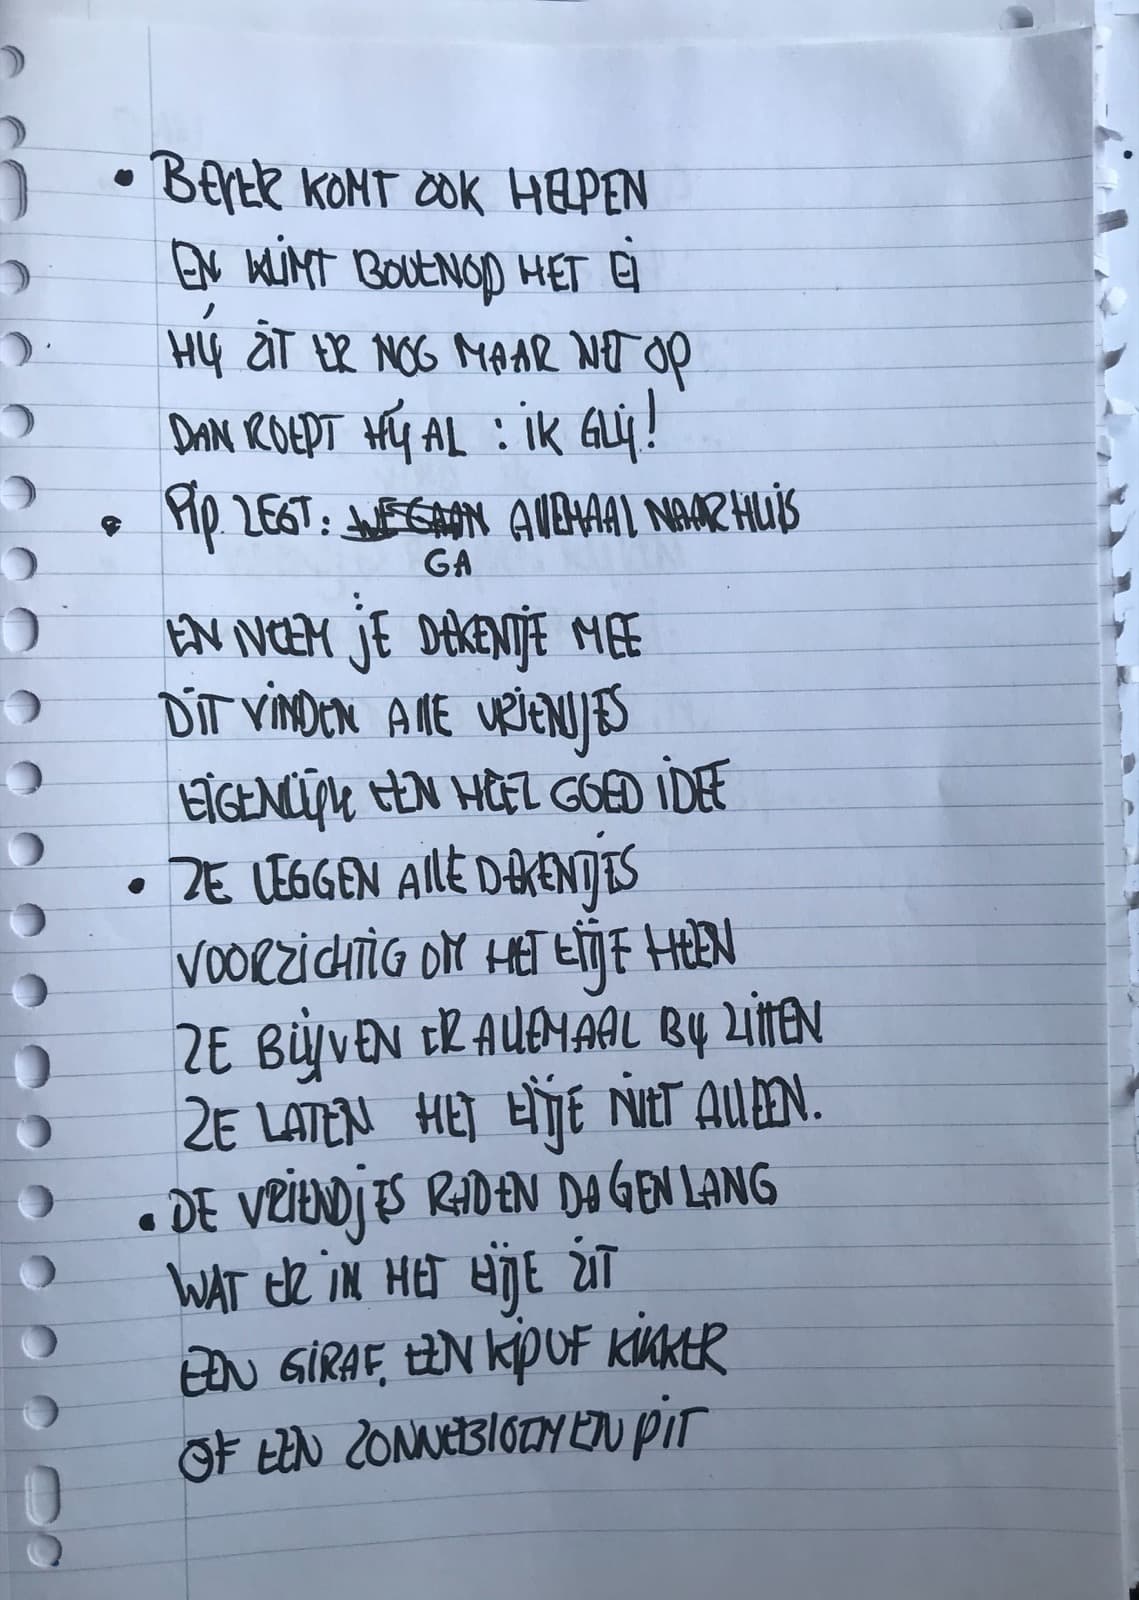 • BEVER KOMT OOK HELPEN
EN KLIMT BOVENOP HET EI
HIJ ZIT ER NOG MAAR NET OP
DAN ROEPT HIJ AL : IK GLIJ!
• PIP ZEGT: WE GAAN ALLEMAAL NAAR HUIS
GA
EN NEEM JE DEKENTJE MEE
DIT VINDEN ALLE VRIENDJES
EIGENLIJK EEN HEEL GOED IDEE
• ZE LEGGEN ALLE DEKENTJES
VOORZICHTIG OM HET EITJE HEEN
ZE BLIJVEN ER ALLEMAAL BIJ ZITTEN
ZE LATEN HET EITJE NIET ALLEEN.
• DE VRIENDJES RADEN DAGENLANG
WAT ER IN HET EITJE ZIT
EEN GIRAF, EEN KIP OF KIKKER
OF EEN ZONNEBLOEMENPIT